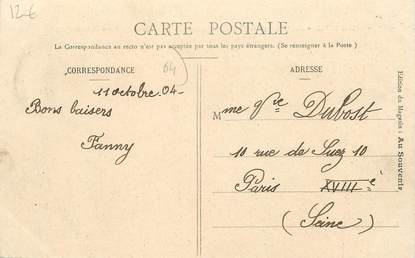 12 €
CARTE POSTALE
La Correspondance au recto n'est pas acceptée par tous les pays étrangers. (Se renseigner à la Poste)
CORRESPONDANCE
64
11 octobre. 04-
Bons baisers
Fanny
ADRESSE
Mme Vve Dubost
10 rue de Suez 10
Paris XVIIIè
(Seine)
Edition du Magasin : Au Souvenir